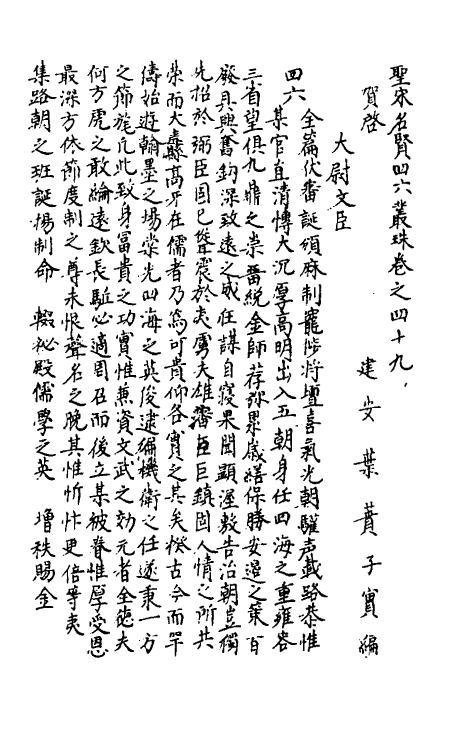 聖宋名賢四六叢珠卷之四十九
建安葉蕡子實編
賀啓
大尉文臣
四六
全篇伏審誕頒麻制寵陟將壇喜氣光朝驩声載路恭惟
某官直清博大沉厚高明出入五朝身任四海之重雍容
三省望俱九鼎之崇暨綰金師荐弥累歲繕保勝安邊之策百
廢具興奮鈎深致遠之威任謀自寢果聞顯渥敷告治朝豈獨
先招於弼臣固已聳震於夷虜夫雄藩巨鎮固人情之所共
榮而大纛高牙在儒者乃為可貴仰名實之其矣揆古今而罕
儔始遊翰墨之場棠光四海之英俊逮編機衛之任遂秉一方
之節旄凡此致身冨貴之功實惟兼資文武之効元者全德夫
何方虎之敢綸遠欽長駈必適周召而後立某被眷惟厚受恩
最深方依節度制之尊未恨聲名之晚其惟忻忭更倍等夷
集路朝之班誕揚制命　輟祕殿儒學之英　增秩賜金